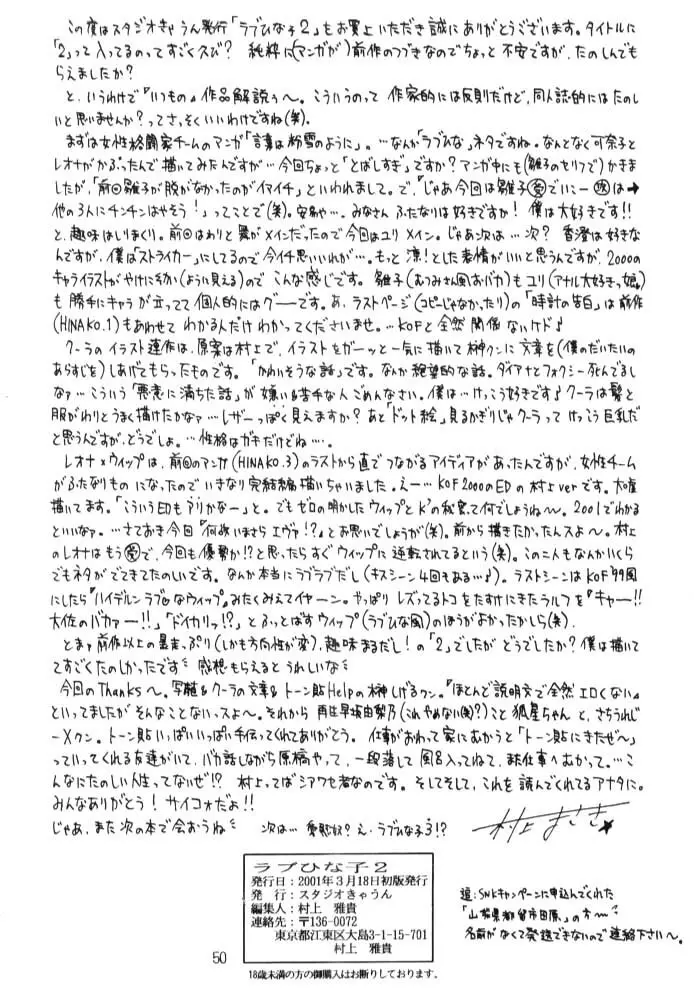 この度はスタジオきゃうん発行「ラブひな子2」をお買上いただき誠にありがとうございます。タイトルに
「2」って入ってるのってすごく久び？ 純粋に(マンガが)前作のつづきなのでちょっと不安ですが、たのしんでも
らえましたか？
と、いうわけで『いつもの』作品解説ぅ〜。こういうのって作家的には反則だけど、同人誌的にはたのし
いと思いませんか？ってさっそくいいわけですね(笑)。
まずは女性格闘家チームのマンガ「言葉は粉雪のように」。…なんか「ラブひな」ネタですね。なんとなく可奈子と
レオナがかぶったんで描いてみたんですが…今回ちょっと「とばしすぎ」ですか？マンガ中にも(雛子のセリフで)かきま
したが、「前回雛子が脱がなかったのがイマイチ」といわれまして。で、
と、趣味ばしりまくり。前回はわりと舞がメインだったので今回はユリメイン。じゃあ次は…次？ 香澄は好きな
んですが、僕は「ストライカー」にしてるので今イチ思いいれが…。もっと凛！とした表情がいいと思うんですが、2000の
キャライラストがやけにそふか(ように見える)のでこんな感じです。
も勝手にキャラが立ってて個人的にはグーです。あ、ラストページ(コピーじゃなかったり)の「時計の告白」は前作
(HINAKO.1)もあわせてわかる人だけわかってくださいませ。…KOFと全然関係ないケド♪
クーラのイラスト連作は、原案は村上で、イラストをガーッと一気に描いて榊クンに文章を(僕のだいたいの
あらすじを)しあげてもらったものです。「かわいそうな話」です。なんか絶望的な話。ダイアナとフォクシー死んでるし
なァ…こういう「悪意に満ちた話」が嫌い&苦手な人ごめんなさい。僕は…けっこう好きです♪クーラは髪と
服がわりとうまく描けたかなァ…レザーっぽく見えますか？
レオナ×ウィップは、前回のマンガ(HINAKO.3)のラストから直でつながるアイディアがあったんですが、女性チーム
がふたなりものになったのでいきなり完結編描いちゃいました。えー…KOF2000のEDの村上verです。大嘘
描いてます。「こういうEDもアリかなー」と。でもゼロの明かしたウィップとK'の秘密って何でしょうね〜。2001でわかる
といいなァ。…さておき今回『何故いまさらエヴァ！？』とお思いでしょうが(笑)。前から描きたかったんスよ〜。村上
でもネタがでてきてたのしいです。なんか本当にラブラブだし(キスシーン4回もある…♪)。ラストシーンはKOF'99風
にしたら『ハイデルンラブ♡なウィップ』みたくみえてイヤーン。やっぱりレズってるトコをたすけにきたラルフを『キャー!!
大佐のバカァー!!』「ドイカリッ!？」とふっとばすウィップ(ラブひな風)のほうがよかったかしら(笑)。
とまァ前作以上の暴走っぷり(しかも方向性が変)、趣味まるだし！の「2」でしたがどうでしたか？僕は描いて
てすごくたのしかったです 感想もらえるとうれしいな
今回のThanks〜。写植&クーラの文章&トーン貼Helpの榊しげるクン。『ほとんど説明文で全然エロくない』
といってましたがそんなことないっスよ〜。それから
トーン貼いっぱいいっぱい手伝ってくれてありがとう。仕事がおわって家にむかうと「トーン貼にきたぜ〜」
っていってくれる友達がいて、バカ話しながら原稿やって、一段落して風呂入ってねて、また仕事へむかって。…こ
んなにたのしい人生ってないぜ!? 村上ってばシアワセ者なのです。そしてそして、これを読んでくれてるアナタに。
みんなありがとう！ サイコォだよ!!
じゃあ、また次の本で会おうね 次は… え、ラブひな子3!?
村上まさき
ラブひな子2
発行日：2001年3月18日初版発行
発　行：スタジオきゃうん
編集人：村上　雅貴
連絡先：〒136-0072
東京都江東区大島3-1-15-701
村上　雅貴
追：SNKキャンペーンに申込んでくれた
「山梨県都留市田原」の方〜
名前がなくて発送できないので連絡下さい〜。
50
18歳未満の方の御購入はお断りしております。